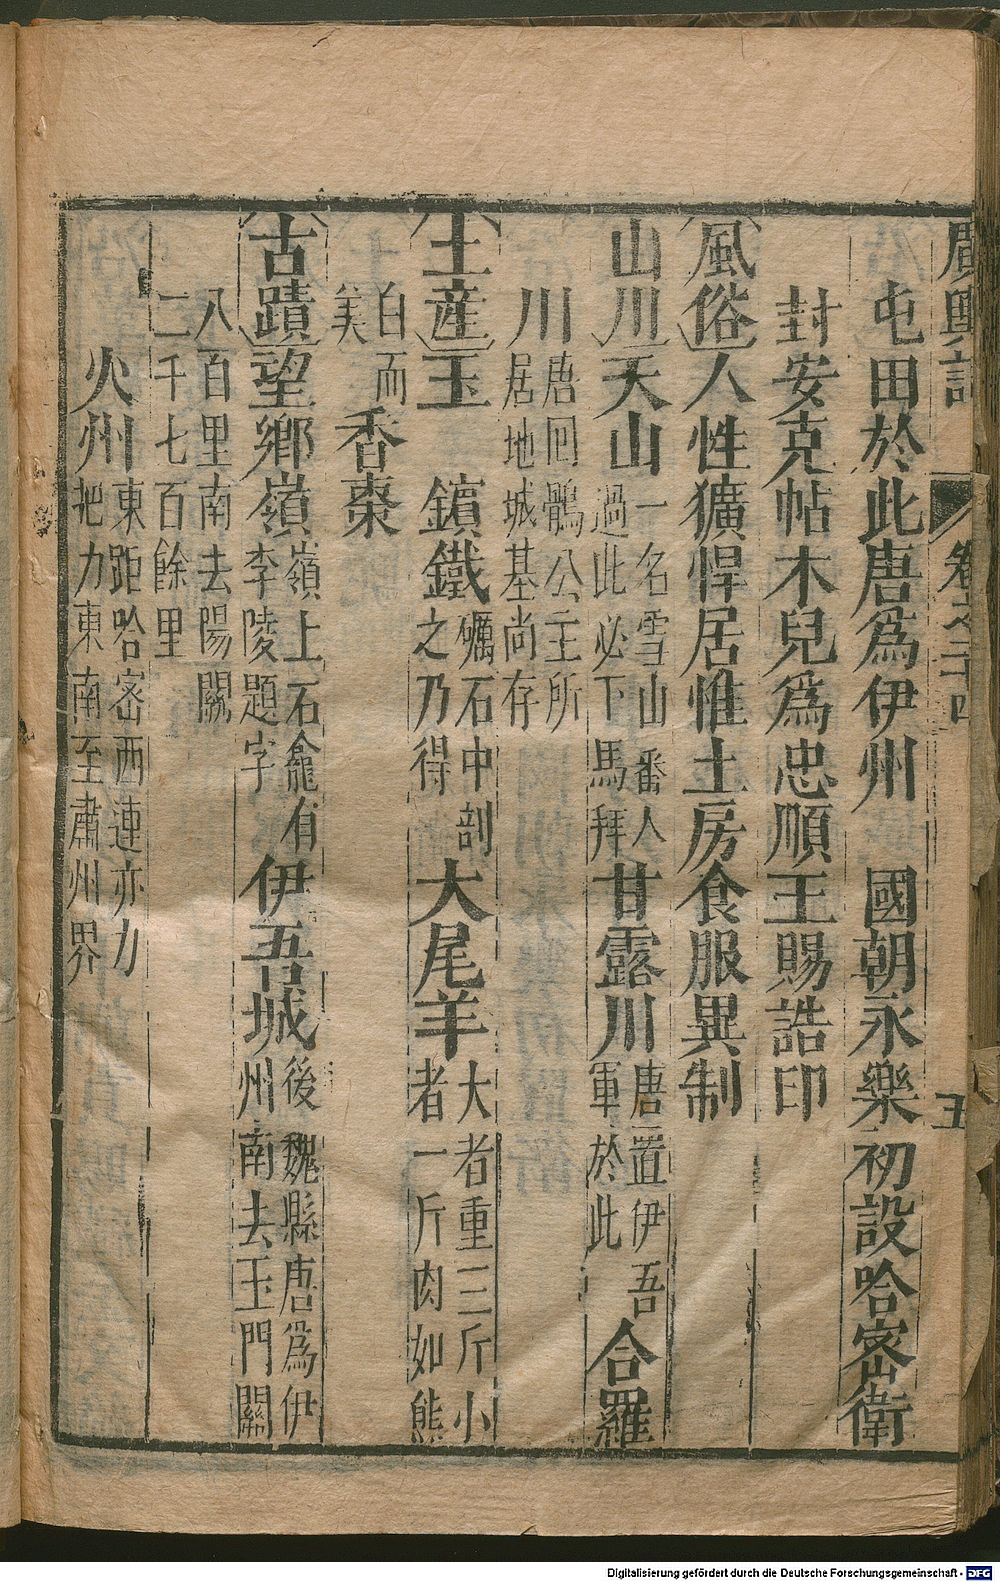 廣輿記 卷之二十四 五
屯田於此唐爲伊州 國朝永樂初設哈密衛
封安克帖木兒爲忠順王賜誥印
風俗人性獷悍居惟土房食服異制
山川天山一名雪山番人過此必下馬拜甘露川唐置伊吾軍於此合羅
川唐囘鶻公主所居地城基尚存
土産玉 鑌鐵礪石中剖之乃得大尾羊大者重三斤小者一斤肉如熊
白而美香棗
古蹟望鄉嶺嶺上石龕有李陵題字伊吾城後魏縣唐爲伊州南去玉門關
八百里南去陽關二千七百餘里
火州東距哈密西連亦力把力東南至肅州界
Digitalisierung gefördert durch die Deutsche Forschungsgemeinschaft - DFG